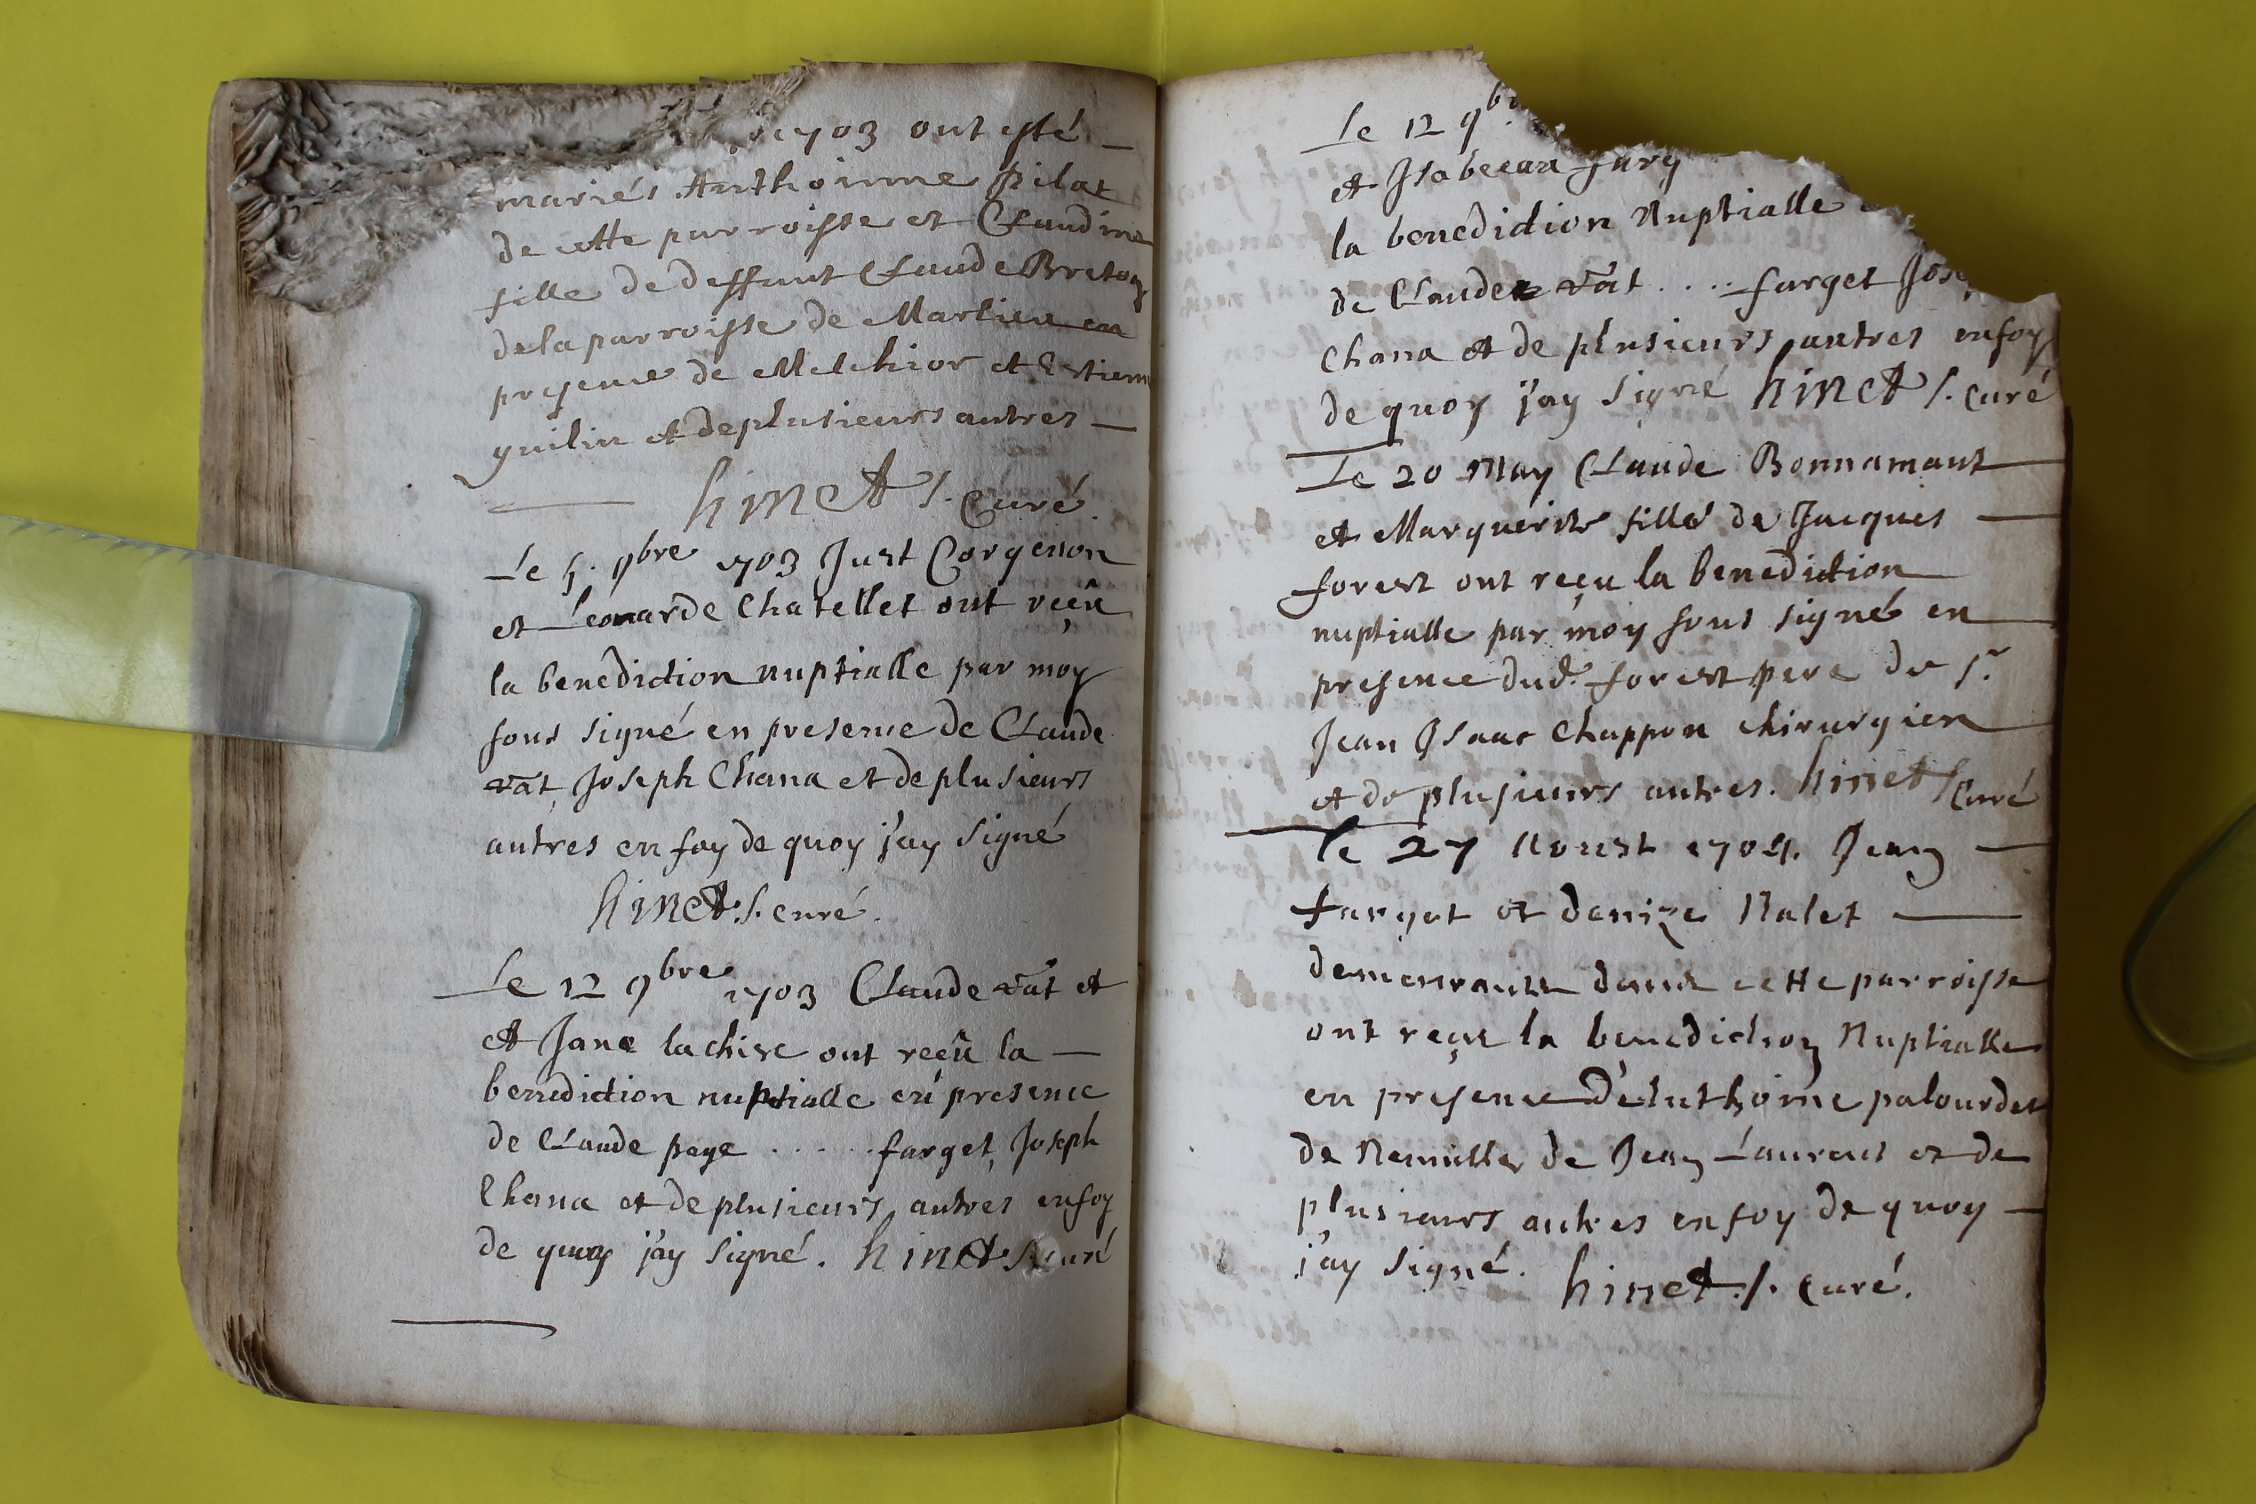 1703 ont esté
mariés Anthoinne pilat
de cette parroisse et Claudine
fille de deffunt Claude Breton
de la parroisse de Marlieu en
presence de Melchior et Estienne
guilin et de plusieurs autres
hinet s. Curé.
Le 5. 9bre 1703 Just Corgenon
et Leonarde Chatellet ont reçû
la benediction nuptialle par moy
sous signé en presence de Claude
vât, Joseph Chana et de plusieurs
autres en foy de quoy j'ay signé
hinet s. curé.
Le 12 9bre 1703 Claude vât et
et Jane lachise ont reçû la
benediction nuptialle en presence
de Claude paye ..... farget, Joseph
Chana et de plusieurs autres en foy
de quoy j'ay signé. hinet s. curé
Le 12 9b
et Isabeau farg
la benediction Nuptialle
de Claude vât .... farget Jose
Chana et de plusieurs autres en foy
de quoy j'ay signé hinet s. curé
Le 20 May Claude Bonnamant
et Marguerite fille de Jacques
forest ont reçu la benediction
nuptialle par moy sous signé en
presence dud. forest pere de sr
Jean Isaac Chappon chirurgien
et de plusieurs autres. hinet s Curé
le 27 Aoust 1704. Jean
farget et denize Nalet
demeurants dans cette parroisse
ont reçu la benediction Nuptialle
en presence D'Anthoine palourdet
de Neuville de Jean Laurent et de
plusieurs autres en foy de quoy
j'ay signé. hinet s. Curé.